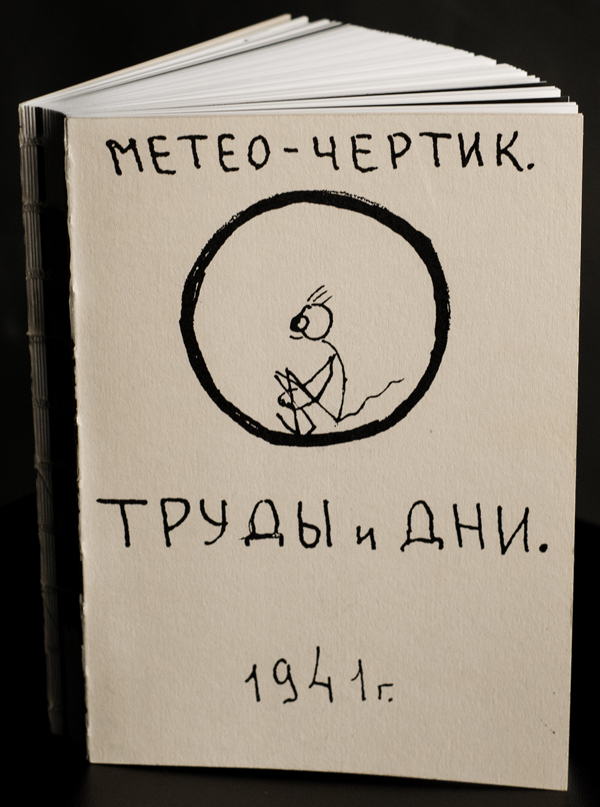 МЕТЕО-ЧЕРТИК.
ТРУДЫ и ДНИ.
1941г.